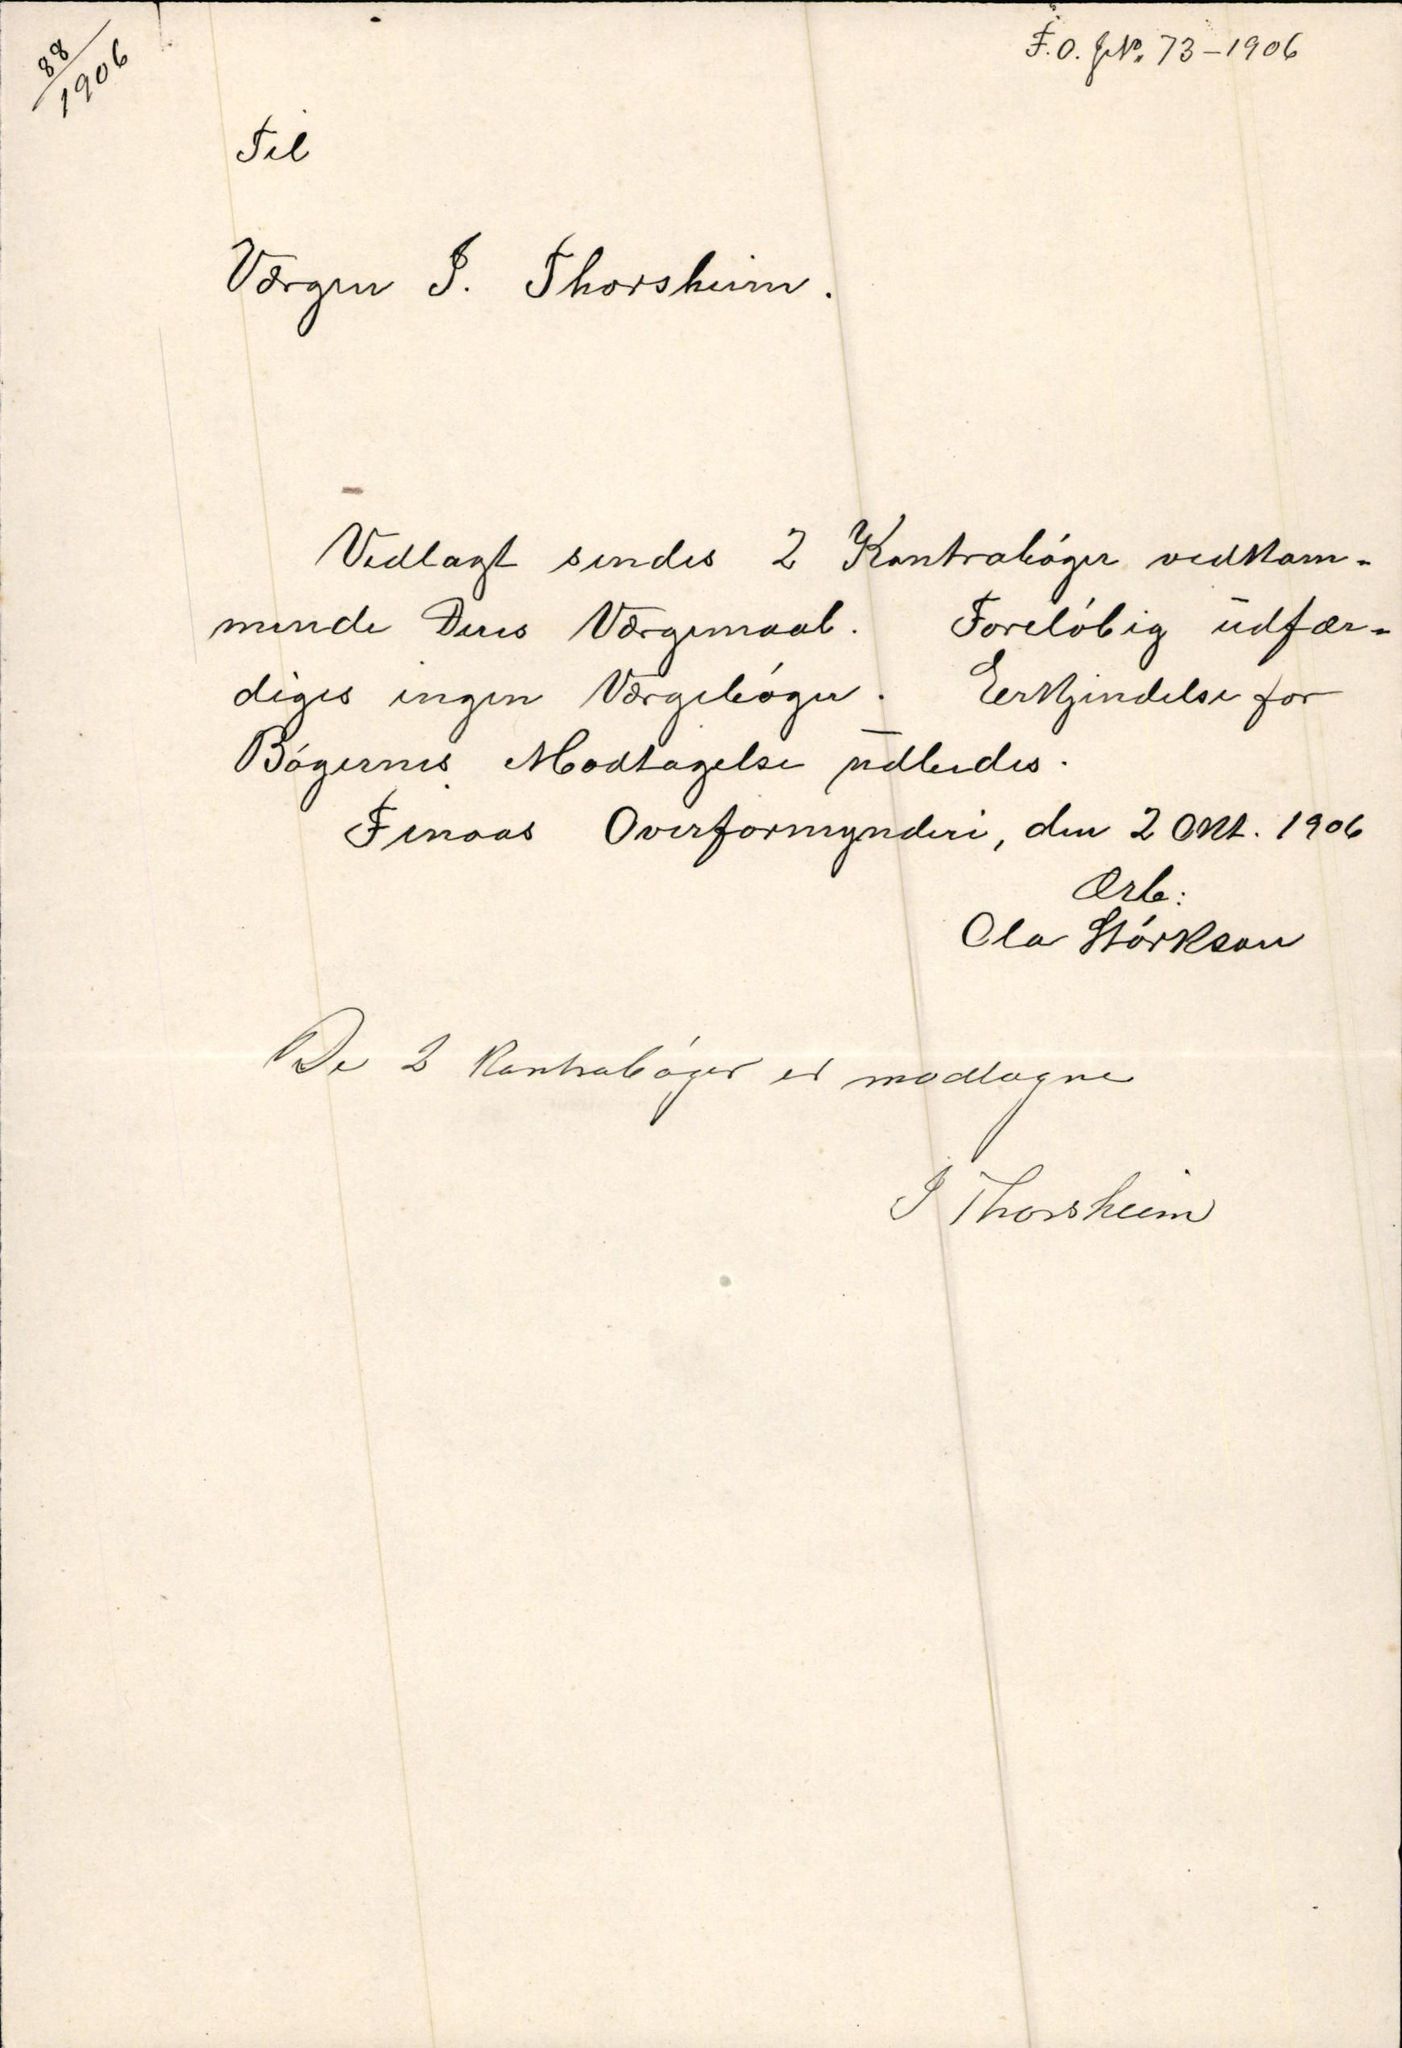 88/1906
F. O. J№. 73-1906
Til
Værgen I. Thorsheim.
Vedlagt sendes 2 Kontrabóger vedkom-
mende Deres Værgemaal. Forelóbig udfær-
diges ingen Værgebóger. Erkjendelse for
Bógernes Modtagelse udbedes.
Finaas Overformynderi, den 2 Okt. 1906
Ærb:
Ola Stórkson
De 2 Kontrabóger er modtagne
I Thorsheim